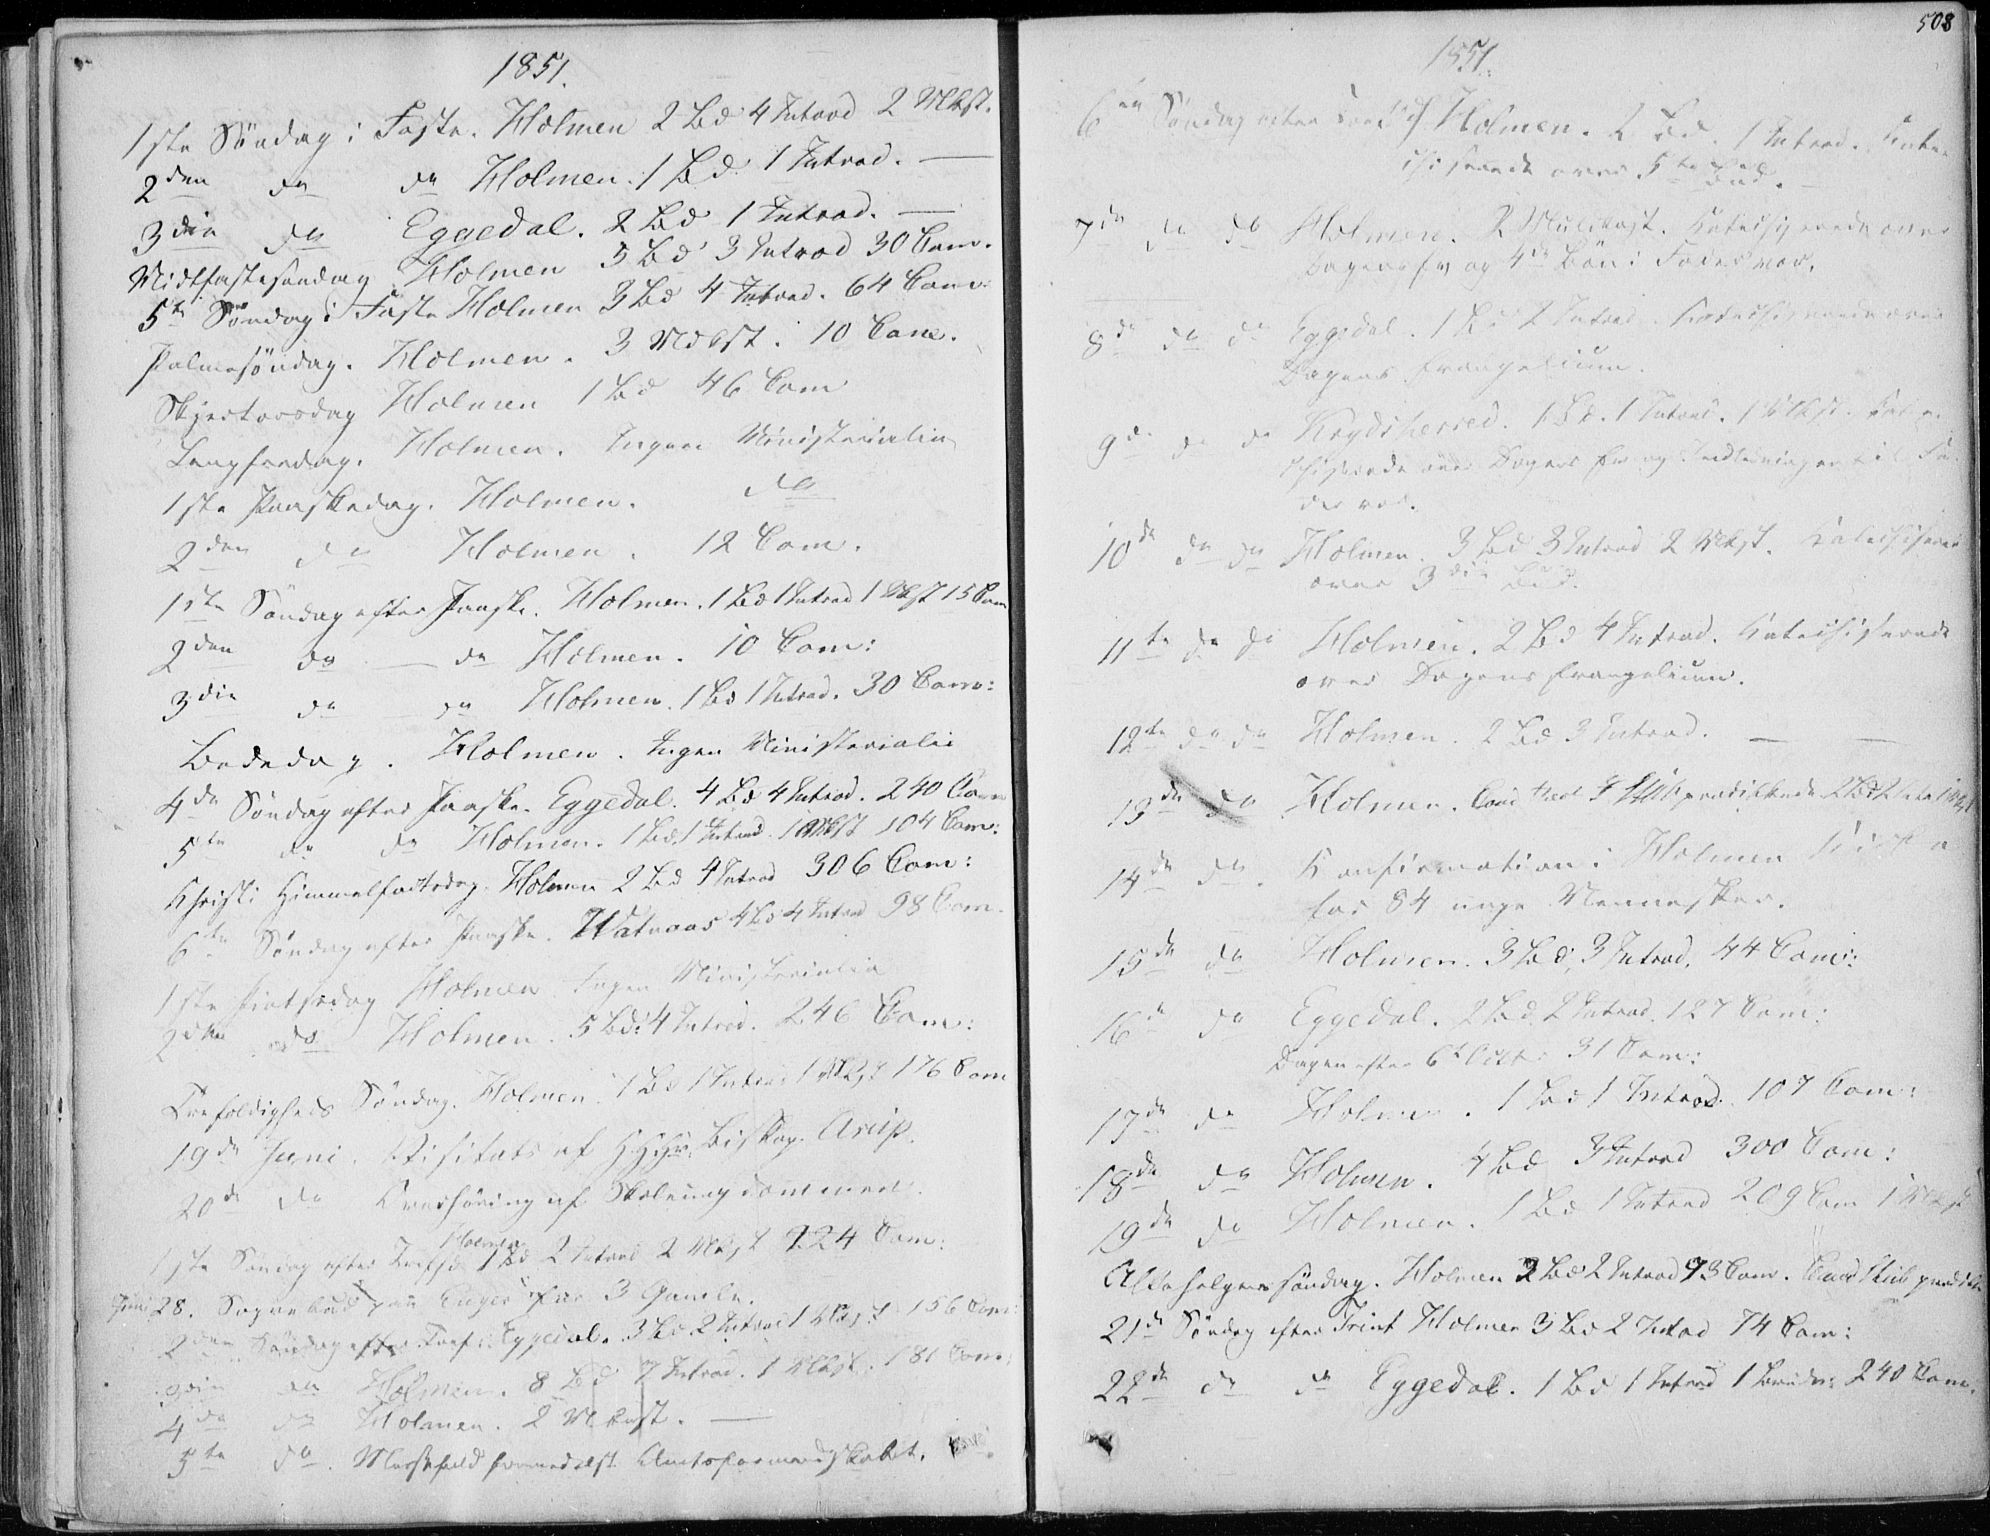 1851.
1ste Söndag i Faste. Holmen 2 Bd 4 Introd 2 Mkst.
2den do do Holmen. 1 Bd. 1 Introd. —
3die do Eggedal. 2 Bd 1 Introd. —
Midtfastesöndag Holmen 5 Bd 3 Introd 30 Com.
5te Söndag i Faste Holmen 3 Bd 4 Introd. 64 Com:
Palmesöndag. Holmen. 3 Mdkst. 10 Com.
Skjertorsdag Holmen 1 Bd 46 Com
Langfredag. Holmen. Ingen Ministerialia
1ste Paaskedag. Holmen. do
2den do Holmen. 12 Com.
1ste Söndag efter Paaske. Holmen. 1 Bd 1 Introd 1 Mkst 15 Com
2den do — do Holmen. 10 Com:
3die do do Holmen. 1 Bd 1 Introd. 30 Com:
Bededag. Holmen. Ingen Ministerialia
4de Söndag efter Paaske. Eggedal. 4 Bd 4 Introd. 240 Com
5te do do Holmen. 1 Bd. 1 Introd. 1 Mkst 104 Com:
Christi Himmelfartsdag. Holmen 2 Bd 4 Introd 306 Com:
6te Söndag efter Paaske. Watnaas 4 Bd 4 Introd 98 Com.
1ste Pintsedag Holmen Ingen Ministerialia
2den do Holmen. 5 Bd: 4 Introd. 246 Com:
Trefoldigheds Söndag. Holmen. 1 Bd 1 Introd 1 Mkst 176 Com
19de Juni. Visitats af Biskop Arup.
20de do Overhöring af Skoleungdommen.
Holmen
1ste Söndag efter Trefh 1 Bd 2 Introd 2 Mkst 224 Com:
Juni 28. Sognebud paa Enger for 3 Gamle.
2den Söndag efter Tref: Eggedal. 3 Bd. 2 Introd 1 Mkst 156 Com:
3die do Holmen. 8 Bd 7 Introd. 1 Mkst. 181 Com:
4de do Holmen. 2 Mkst. —
5te do. Messefald formedelst Amtsformandskabet.
508
1851.
6te Söndag efter Holmen. 2 Bd. 1 Introd. Kate-
chiserede over 5te Bud. —
7de do do Holmen. 2 Mkst. Katechiserede over
Dagens Ev og 4de Bön i Fadervor.
8de do do Eggedal. 1 Bd 2 Introd. Katechiserede over
Dagens Evangelium.
9de do do Krydsherred. 1 Bd. 1 Introd. 1 Mkst. Kate-
chiserede over Dagens Ev og Indledningen til Fa-
dervor.
10de do do Holmen. 3 Bd 3 Introd 2 Mkst. Katechiserede
over 3die Bud.
11te do do Holmen. 2 Bd 4 Introd. Katechiserede
over Dagens Evangelium.
12te do do Holmen. 2 Bd 3 Introd. — —
13de do Holmen. Cand prædikede 2 Bd 2
14de do. Konfirmation i Holmen Kirke
for 84 unge Mennesker.
15de do Holmen. 3 Bd. 3 Introd. 44 Com:
16de do Eggedal. 2 Bd. 2 Introd. 127 Com:
Dagen efter 6te Octbr 31 Com:
17de do Holmen. 1 Bd 1 Introd. 107 Com:
18de do Holmen. 4 Bd 3 Introd 300 Com:
19de do Holmen. 1 Bd 1 Introd 209 Com 1 Mkst
Allehelgenssöndag. Holmen 2 Bd 2 Introd 93 Com. Cand prædike
21de Söndag efter Trinit Holmen 3 Bd 2 Introd 74 Com:
22de do do Eggedal. 1 Bd 1 Introd 1 240 Com.